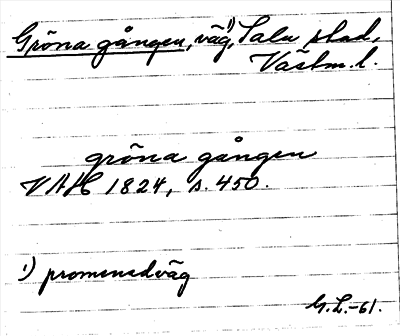 Gröna gången, väg¹⁾, Sala stad,
Västm. l.
gröna gången
VAH 1824, s. 450.
¹⁾ promenadväg
G.L.-61.